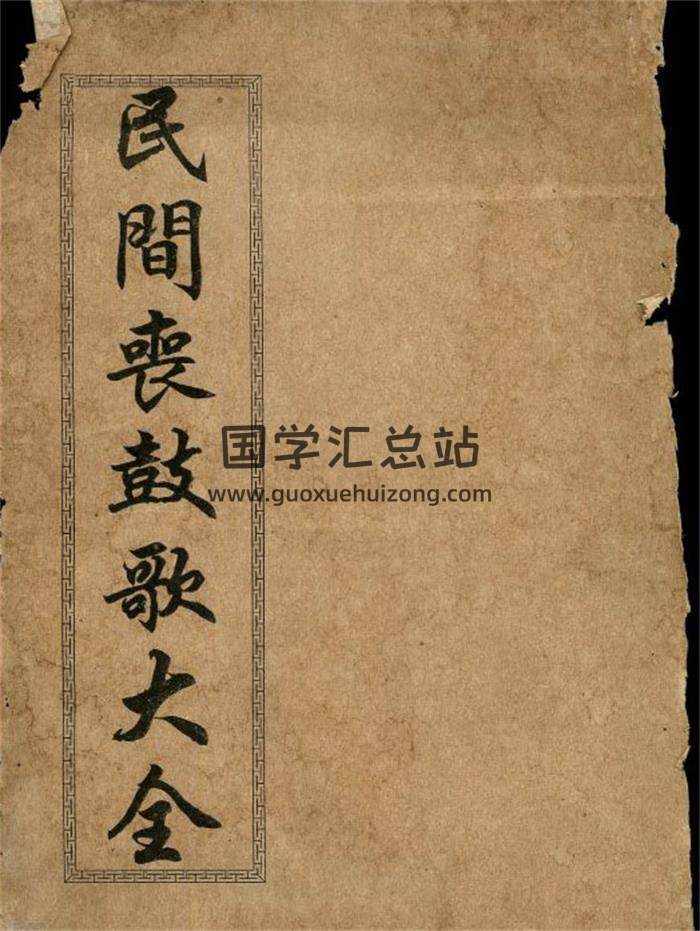 民間喪鼓歌大全
国学汇总站
www.guoxuehuizong.com